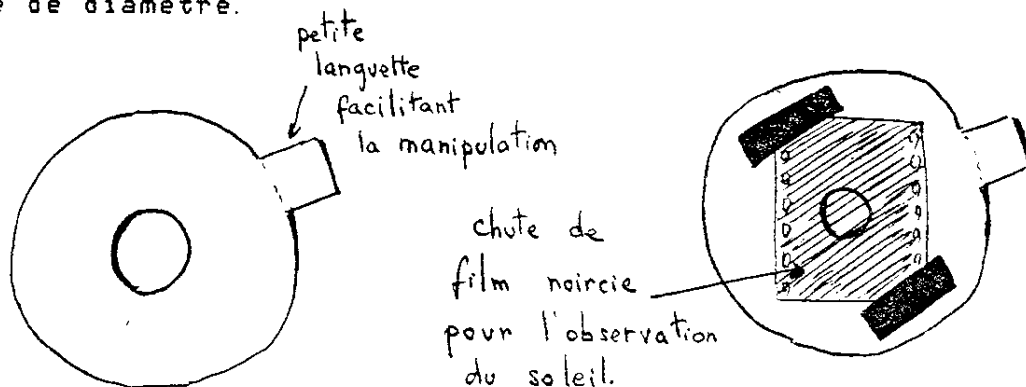 de diamètre.
petite
languette
facilitant
la manipulation
chute de
film noircie
pour l'observation
du soleil.